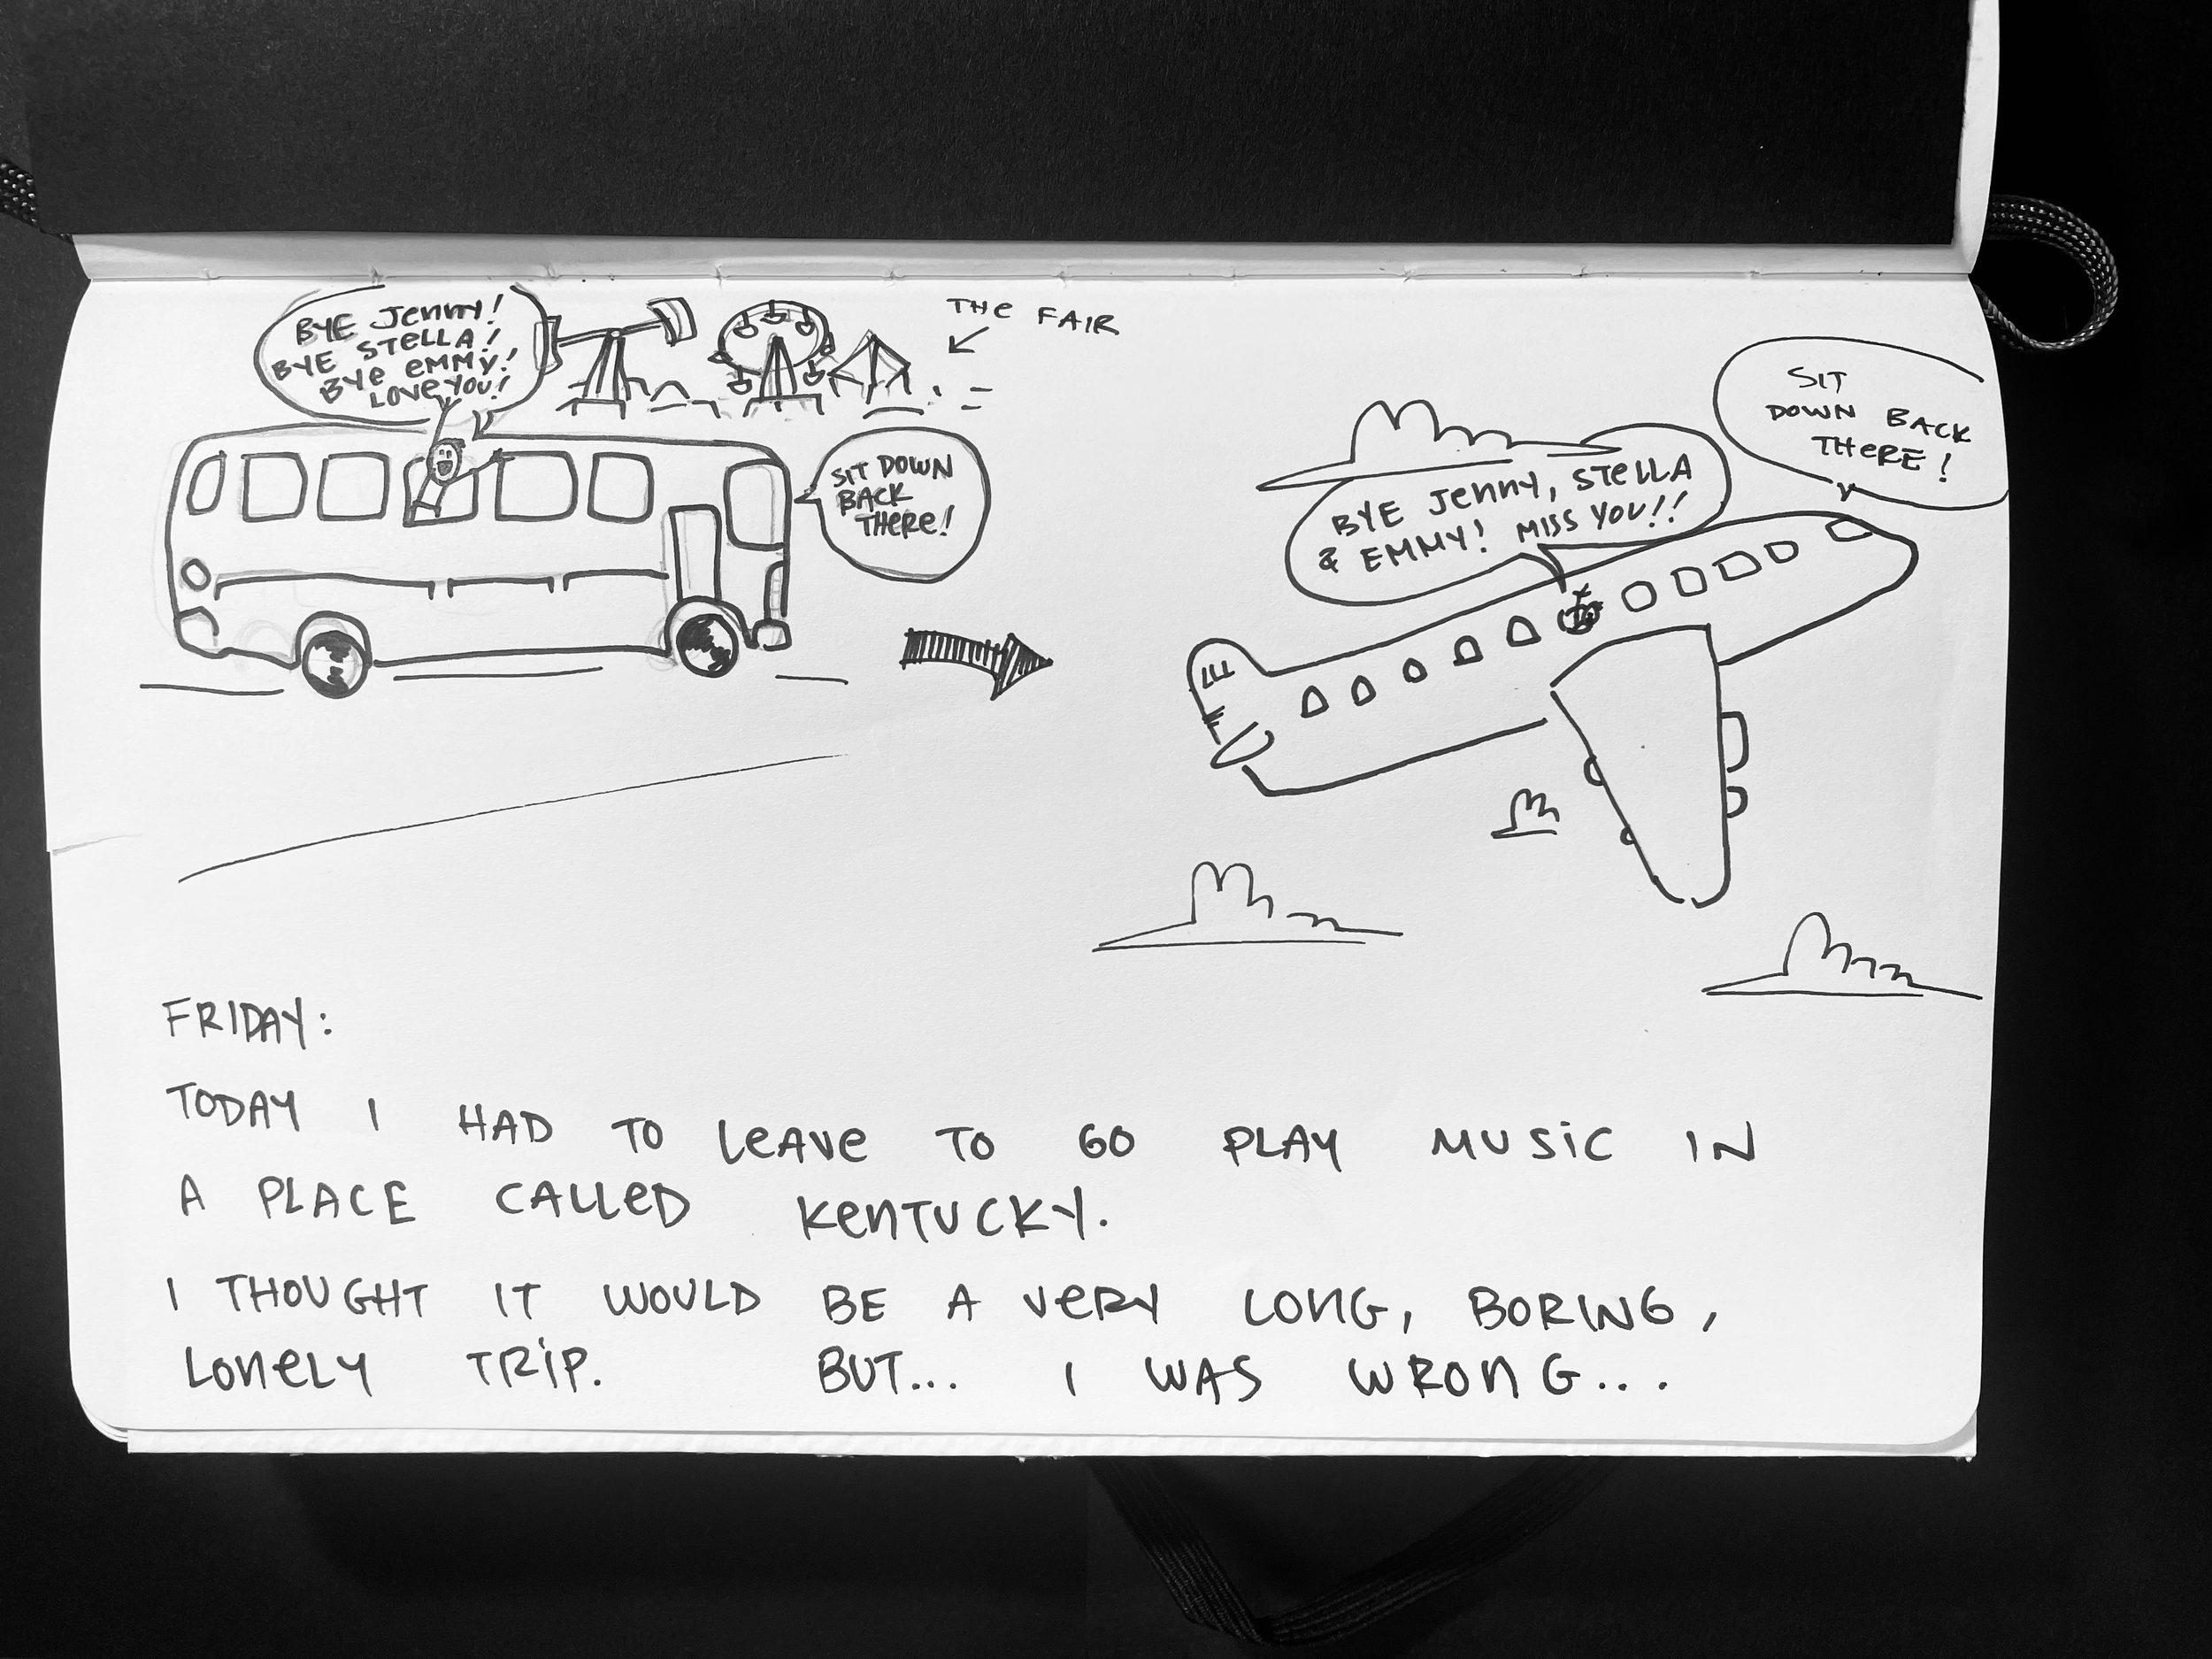 BYE Jenny!
BYE STELLA!
BYE EMMY!
LOVE YOU!
THE FAIR
SIT DOWN
BACK
THERE!
BYE JENNY, STELLA
& EMMY! MISS YOU!!
SIT
DOWN BACK
THERE!
FRIDAY:
TODAY I HAD TO LEAVE TO GO PLAY MUSIC IN
A PLACE CALLED KENTUCKY.
I THOUGHT IT WOULD BE A VERY LONG, BORING,
LONELY TRIP. BUT... I WAS WRONG...